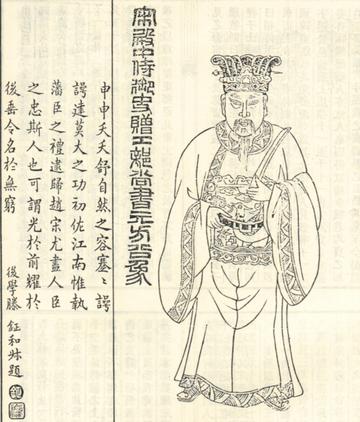 宋殿中侍御史贈工部尚書元方公像
申申夭夭舒自然之容蹇〻諤
諤建莫大之功初佐江南惟執
藩臣之禮逮歸趙宋尤盡人臣
之忠斯人也可謂光於前耀於
後垂令名於無窮
後學滕鉦和拜題